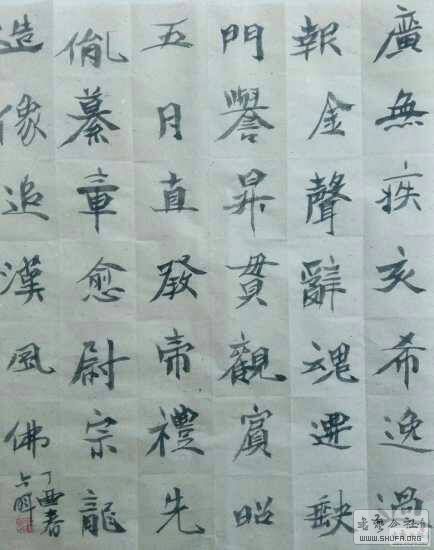 廣無疾亥希逸過
報金聲辭魂遷
門譽昇貫觀賓昭
五月直發帝禮先
胤纂章愈尉宗龍
造像追漢風佛
丁酉春
書藝公社
WWW.SHUFA.ORG